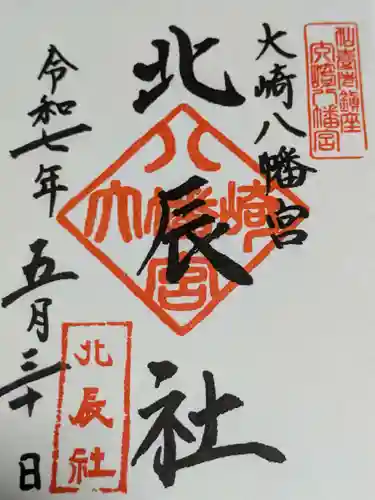 仙臺總鎮座
大崎八幡宮
大崎八幡宮
北辰社
大崎八幡宮
令和七年
五月三十日
北辰社